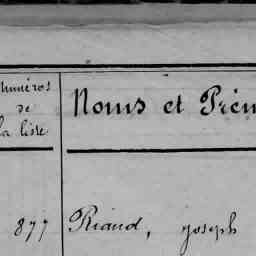 Numéros
de
la liste
Noms et Prén
877 Riand, Joseph